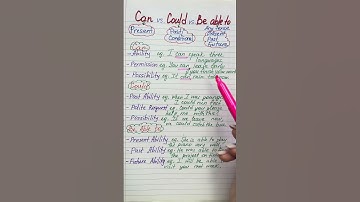 Can vs. Could vs. Be able to
Present
Past
Conditions
Any tense
Present
Past
Future
Can
- Ability eg. I can speak three
languages
- Permission eg. You can leave early
if you finish your work
- Possibility eg. It can rain
Could
- Past Ability eg. When I was younger
I could run fast
- Polite Request eg. Could you please
help me with this?
- Possibility eg. If we leave now,
we could catch the bus
Be able to
- Present Ability eg. She is able to play
piano very well.
- Past Ability eg. He was able to
the project on time
- Future Ability eg. I will be able to
visit you next week.